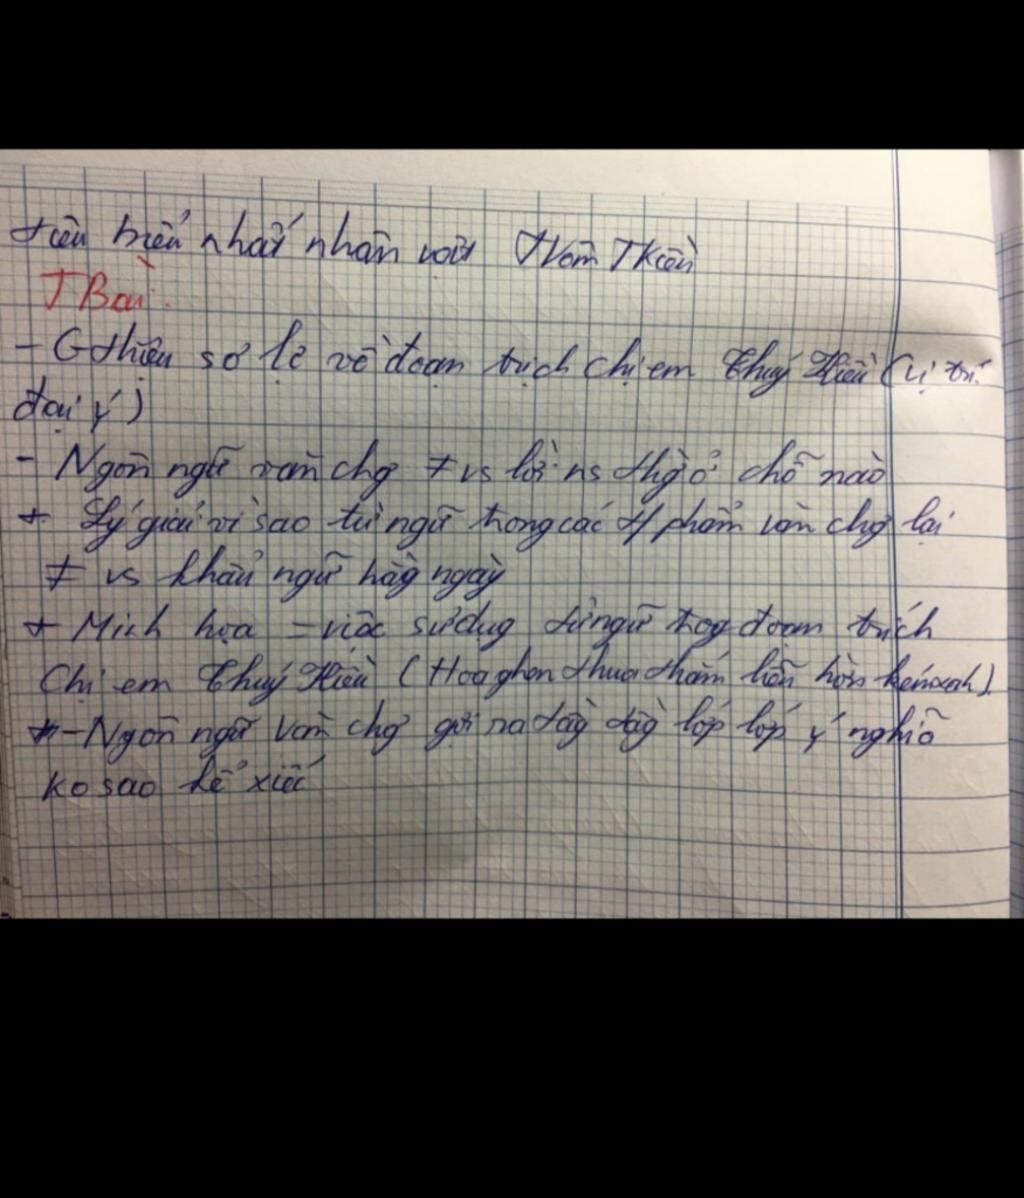 tiêu biểu nhất nhân vật Thơm TKiều
TBài:
- Gthiệu sơ lc về đoạn trích chị em Thuý Kiều (vị trí
đại ý)
- Ngôn ngữ văn chg ≠ vs lời ns thg ở chỗ nào
+ Lý giải vì sao từ ngữ trong các t/phẩm văn chg lại
≠ vs khẩu ngữ hàg ngày
+ Mich họa = việc sử dụg từ ngữ trog đoạn trích
Chị em Thuý Kiều (Hoa ghen thua thắm liễu hờn kém xah).
+ - Ngôn ngữ văn chg gợi ra tầg tầg lớp lớp ý nghĩa
ko sao kể xiết